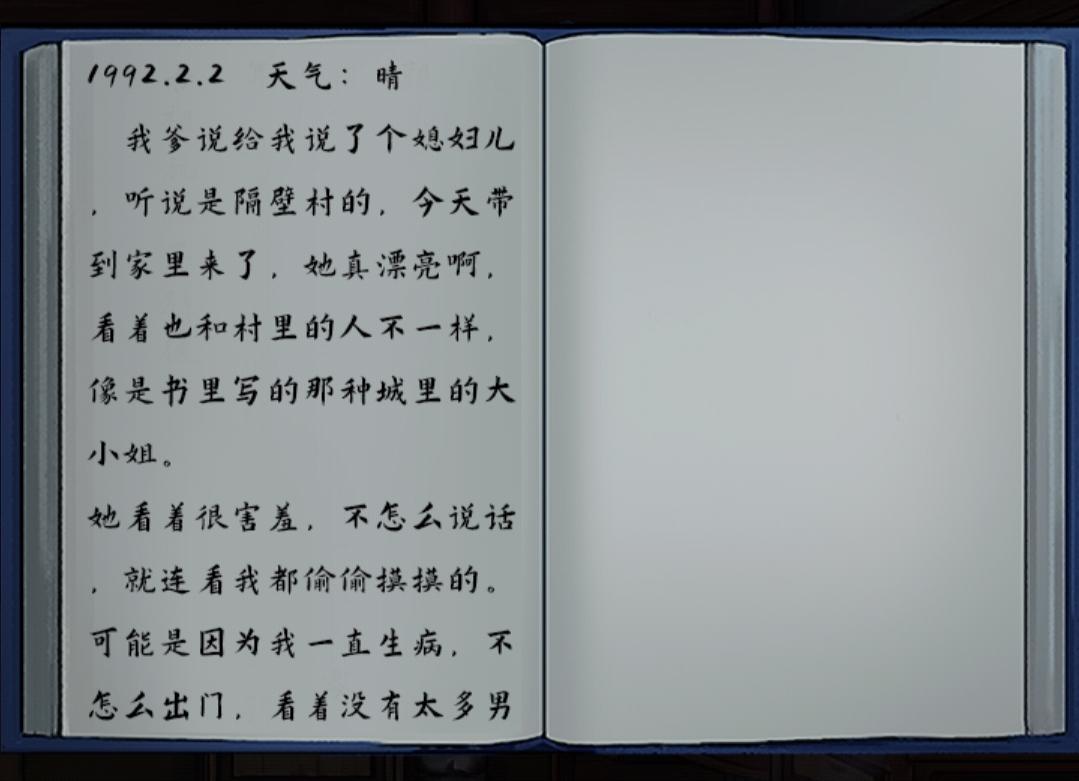 1992.2.2 天气：晴
我爹说给我说了个媳妇儿
，听说是隔壁村的，今天带
到家里来了，她真漂亮啊，
看着也和村里的人不一样，
像是书里写的那种城里的大
小姐。
她看着很害羞，不怎么说话
，就连看我都偷偷摸摸的。
可能是因为我一直生病，不
怎么出门，看着没有太多男